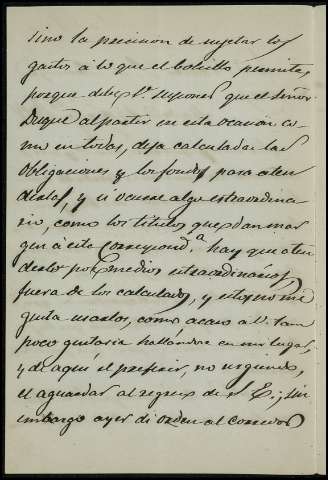 sino la precision de sujetar los
gastos á lo que el bolsillo permite,
porque debe V. suponer que el Señor
Duque al partir en esta ocasion co-
mo en todas, deja calculadas las
obligaciones y los fondos para aten
derlas, y si ocurre algo estraordina
rio, como los titulos que dan mar
gen á esta correspond.ª hay que aten
derlos por medios estraordinarios,
fuera de los calculados, y estos no me
gusta usarlos, como acaso á V. tam
poco gustaria hallandose en mi lugar,
y de aqui el preferir, no urgiendo,
el aguardar al regreso de S. E.; sin
embargo ayer di orden al corredor